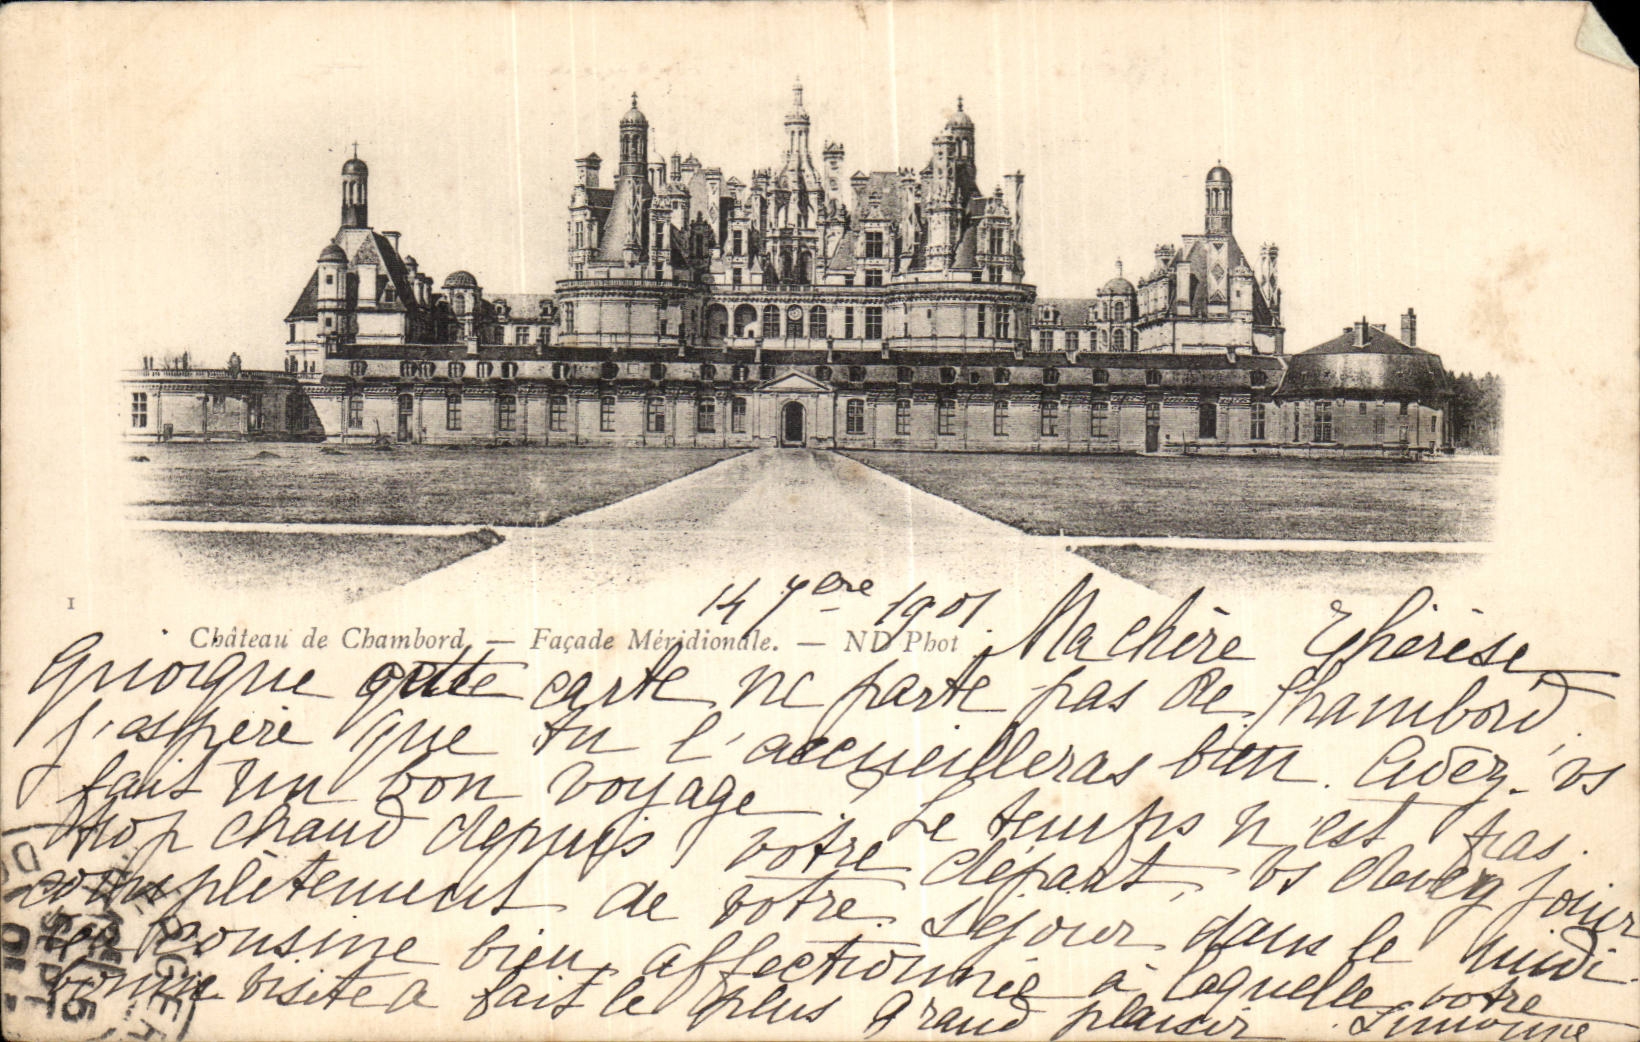 1
Château de Chambord. — Façade Méridionale. — ND Phot
14 7bre 1901.
Ma chère Thérèse,
Quoique cette carte ne parte pas de Chambord,
j'espère que tu l'accueilleras bien. Avez-vs
fait un bon voyage ? Le temps n'est pas
trop chaud depuis votre départ, vs devez jouir
complètement de votre séjour dans le midi.
Ta cousine bien affectionnée à laquelle votre
bonne visite a fait le plus grand plaisir. Simonne
15
SEPT
01